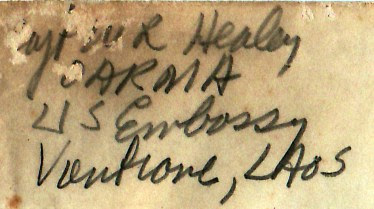 Cpt M R Healey
OARMA
US Embossy
Vontione, LAOS